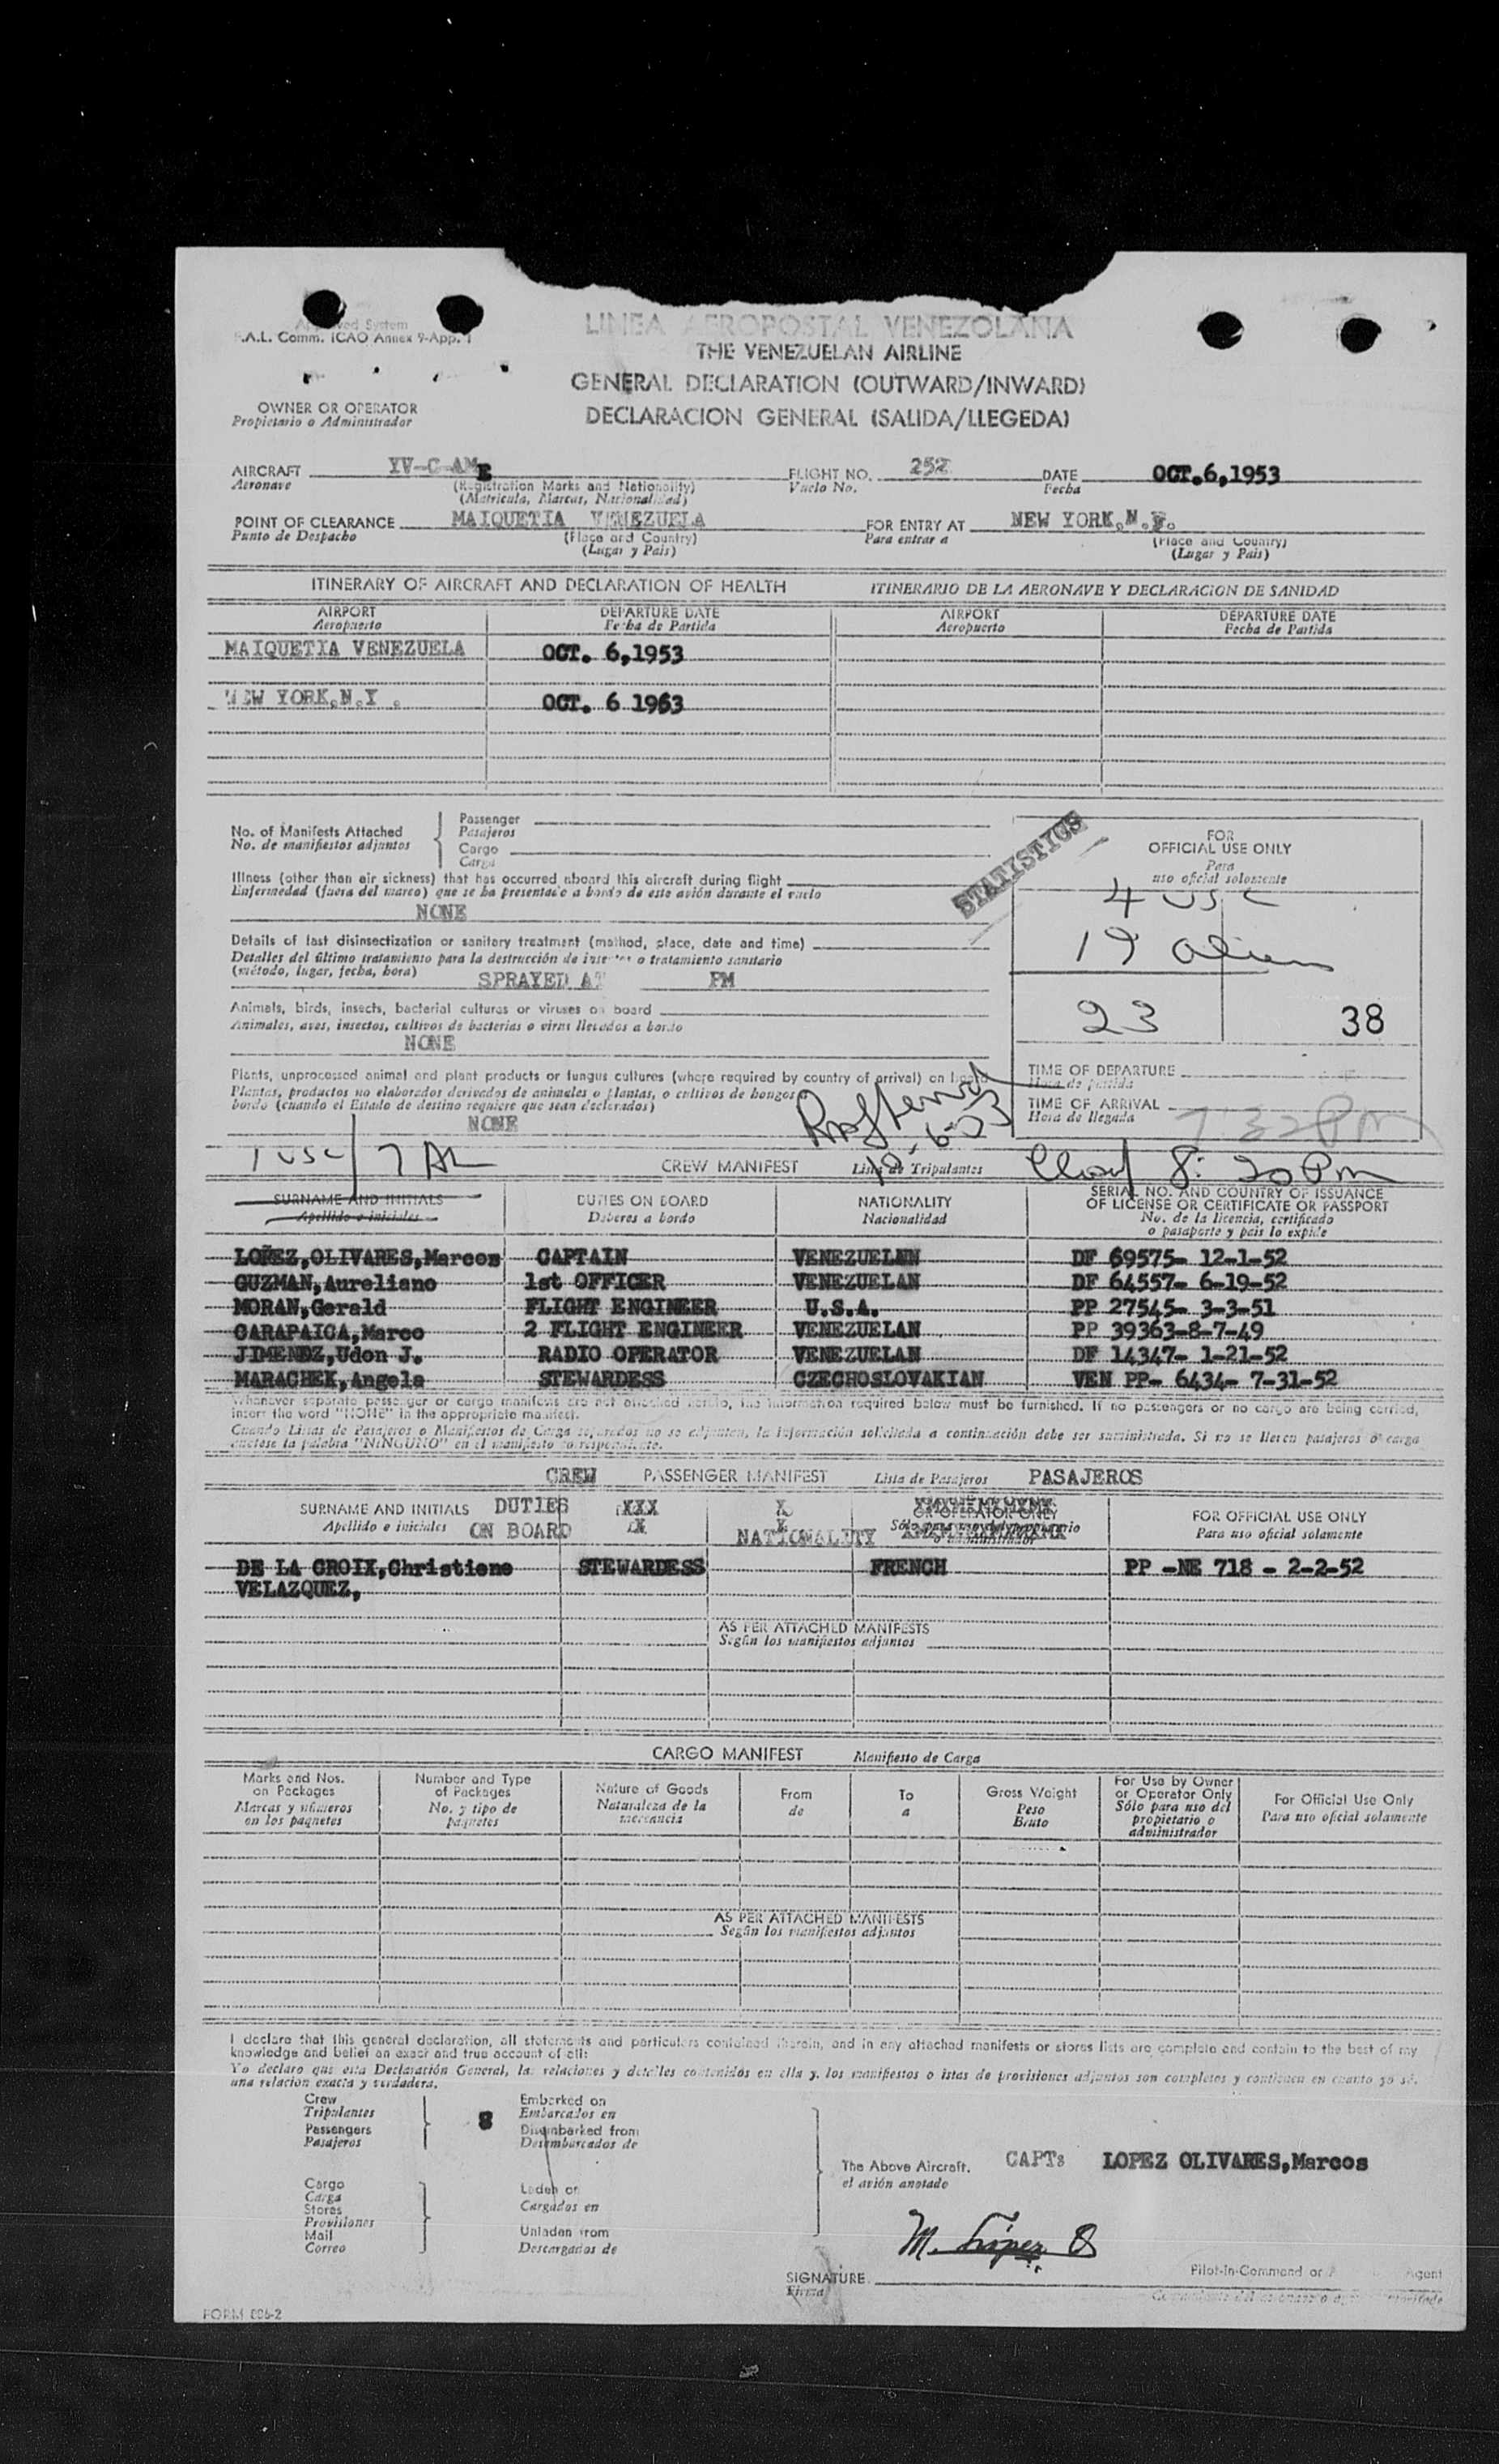 Approved System
F.A.L. Comm. ICAO Annex 9-App. 1
LINEA AEROPOSTAL VENEZOLANA
THE VENEZUELAN AIRLINE
GENERAL DECLARATION (OUTWARD/INWARD)
DECLARACION GENERAL (SALIDA/LLEGEDA)
OWNER OR OPERATOR
Propietario o Administrador
AIRCRAFT YV-C-AME FLIGHT NO. 252 DATE OCT.6,1953
Aeronave (Registration Marks and Nationality) Vuelo No. Fecha
(Matricula, Marcas, Nacionalidad)
POINT OF CLEARANCE MAIQUETIA VENEZUELA FOR ENTRY AT NEW YORK,N.Y.
Punto de Despacho (Place and Country) Para entrar a (Place and Country)
(Lugar y Pais) (Lugar y Pais)
ITINERARY OF AIRCRAFT AND DECLARATION OF HEALTH ITINERARIO DE LA AERONAVE Y DECLARACION DE SANIDAD
AIRPORT DEPARTURE DATE AIRPORT DEPARTURE DATE
Aeropuerto Fecha de Partida Aeropuerto Fecha de Partida
MAIQUETIA VENEZUELA OCT. 6,1953
NEW YORK,N.Y . OCT. 6 1953
No. of Manifests Attached
No. de manifiestos adjuntos
Passenger
Pasajeros
Cargo
Carga
STATISTICS
FOR
OFFICIAL USE ONLY
Para
uso oficial solamente
4 USC
19 alien
23
38
Illness (other than air sickness) that has occurred aboard this aircraft during flight
Enfermedad (fuera del mareo) que se ha presentado a bordo de este avión durante el vuelo
NONE
Details of last disinsectization or sanitary treatment (method, place, date and time)
Detalles del último tratamiento para la destrucción de insectos o tratamiento sanitario
(método, lugar, fecha, hora)
SPRAYED AT PM
Animals, birds, insects, bacterial cultures or viruses on board
Animales, aves, insectos, cultivos de bacterias o virus llevados a bordo
NONE
Plants, unprocessed animal and plant products or fungus cultures (where required by country of arrival) on board
Plantas, productos no elaborados derivados de animales o plantas, o cultivos de hongos
bordo (cuando el Estado de destino requiere que sean declarados)
NONE
TIME OF DEPARTURE
Hora de partida
TIME OF ARRIVAL 7:32 PM
Hora de llegada
10-6-53
1 USC / 7 AL
CREW MANIFEST Lista de Tripulantes 8:20 PM
SURNAME AND INITIALS DUTIES ON BOARD NATIONALITY SERIAL NO. AND COUNTRY OF ISSUANCE
OF LICENSE OR CERTIFICATE OR PASSPORT
Apellido e iniciales Deberes a bordo Nacionalidad No. de la licencia, certificado
o pasaporte y pais lo expide
LOPEZ,OLIVARES,Marcos CAPTAIN VENEZUELAN DF 69575- 12-1-52
GUZMAN,Aureliano 1st OFFICER VENEZUELAN DF 64557- 6-19-52
MORAN,Gerald FLIGHT ENGINEER U.S.A. PP 27545- 3-3-51
CARAPAICA,Marco 2 FLIGHT ENGINEER VENEZUELAN PP 39363-8-7-49
JIMENEZ,Udon J. RADIO OPERATOR VENEZUELAN DF 14347- 1-21-52
MARACHEK,Angela STEWARDESS CZECHOSLOVAKIAN VEN PP- 6434- 7-31-52
Whenever separate passenger or cargo manifests are not attached hereto, the information required below must be furnished. If no passengers or no cargo are being carried,
insert the word "NONE" in the appropriate manifest.
Cuando Listas de Pasajeros o Manifiestos de Carga separados no se adjunten, la información solicitada a continuación debe ser suministrada. Si no se lleven pasajeros o carga
anótese la palabra "NINGUNO" en el manifiesto correspondiente.
CREW PASSENGER MANIFEST Lista de Pasajeros PASAJEROS
SURNAME AND INITIALS DUTIES XXX X OR OPERATOR ONLY FOR OFFICIAL USE ONLY
Apellido e iniciales ON BOARD X X NATIONALITY Para uso oficial solamente
DE LA CROIX,Christiene STEWARDESS FRENCH PP -NE 718 - 2-2-52
VELAZQUEZ,
AS PER ATTACHED MANIFESTS
Según los manifiestos adjuntos
CARGO MANIFEST Manifiesto de Carga
Marks and Nos. on Packages Number and Type of Packages Nature of Goods From To Gross Weight For Use by Owner or Operator Only For Official Use Only
Marcas y números en los paquetes No. y tipo de paquetes Naturaleza de la mercancia de a Peso Bruto Sólo para uso del propietario o administrador Para uso oficial solamente
AS PER ATTACHED MANIFESTS
Según los manifiestos adjuntos
I declare that this general declaration, all statements and particulars contained therein, and in any attached manifests or stores lists are complete and contain to the best of my
knowledge and belief an exact and true account of all:
Yo declaro que esta Declaración General, las relaciones y detalles contenidos en ella y los manifiestos o listas de provisiones adjuntos son completos y contienen en cuanto yo sé,
una relacion exacta y verdadera.
Crew
Tripulantes
Passengers
Pasajeros
8
Embarked on
Embarcados en
Disembarked from
Desembarcados de
Cargo
Carga
Stores
Provisiones
Mail
Correo
Laden on
Cargados en
Unladen from
Descargados de
The Above Aircraft. CAPT: LOPEZ OLIVARES,Marcos
el avión anotado
M. López O
SIGNATURE
Firma
Pilot-in-Command or Agent
FORM 806-2